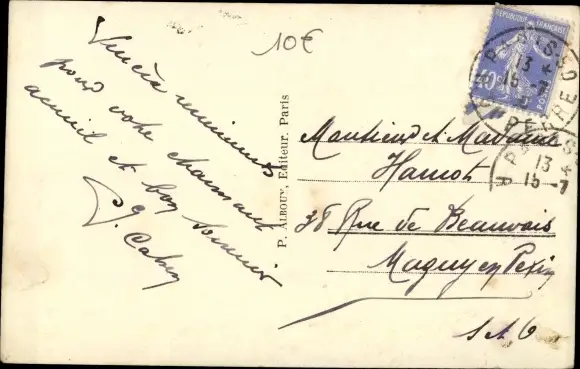 10€
Sincères remerciements
pour votre charmant
accueil et bon souvenir
P. ALBOUY, Editeur. Paris
Monsieur et Madame
Hamot
38 Rue de Beauvais
Magny en Vexin
S et O
REPUBLIQUE FRANÇAISE
PARIS
13 *
15 - 7
13 *
15 - 7